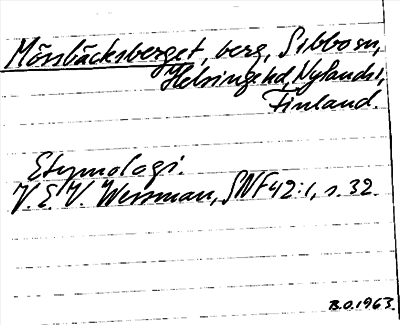 Mörsbäcksberget, berg, Sibbo sn,
Helsinge hd, Nylands l,
Finland.
Etymologi.
V. E. V. Wessman, SNF 42:1, s. 32.
B.O. 1963.